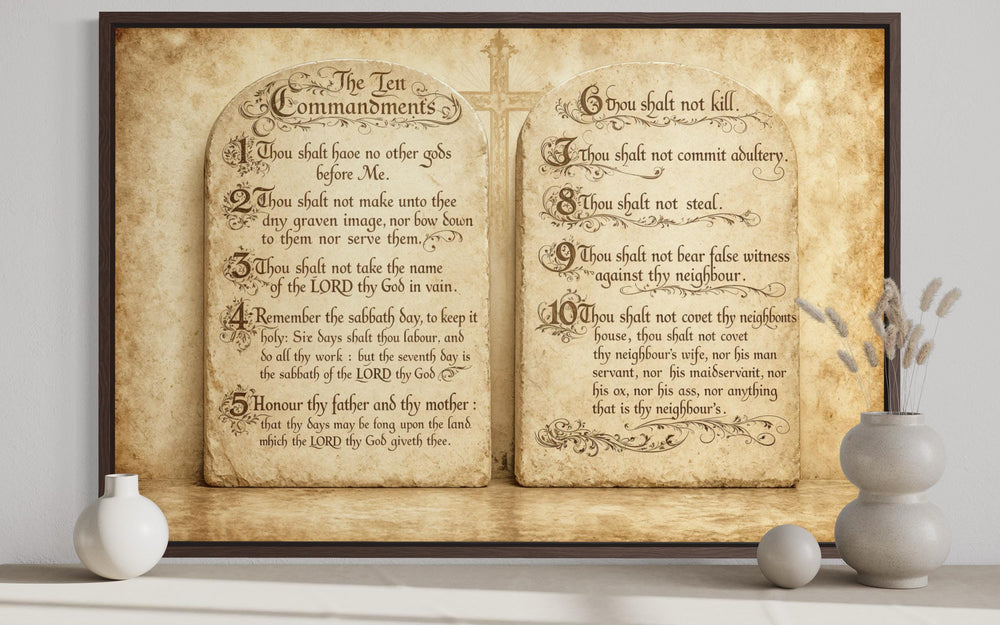 The Ten
Commandments
1 Thou shalt haoe no other gods
before Me.
2 Thou shalt not make unto thee
dny graven image, nor bow down
to them nor serve them.
3 Thou shalt not take the name
of the LORD thy God in vain.
4 Remember the sabbath day, to keep it
holy: Sie days shalt thou labour, and
do all thy work : but the seventh day is
the sabbath of the LORD thy God
5 Honour thy father and thy mother :
that thy days may be fong upon the land
which the LORD thy God giveth thee.
6 Thou shalt not kill.
7 Thou shalt not commit adultery.
8 Thou shalt not steal.
9 Thou shalt not bear false witness
against thy neighbour.
10 Thou shalt not covet thy neighbonts
house, thou shalt not covet
thy neighbour's wife, nor his man
servant, nor his maidservant, nor
his ox, nor his ass, nor anything
that is thy neighbour's.